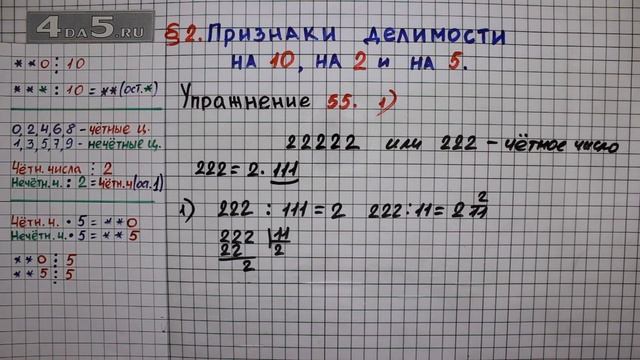 4DA5.RU
§2. Признаки делимости
на 10, на 2 и на 5.
**0 ⋮ 10
*** : 10 = ** (ост.*)
0,2,4,6,8 - чётные ц.
1,3,5,7,9 - нечётные ц.
Чётн. числа ⋮ 2
Нечётн.ч. : 2 = чётн.ч (ос.1)
Чётн.ч. • 5 = **0
Нечётн.ч. • 5 = **5
**0 ⋮ 5
**5 ⋮ 5
Упражнение 55. 1)
22222 или 222 - чётное число
222 = 2 · 111
1) 222 : 111 = 2 222 : 11 = 2 2/11
222 11
22 2
2